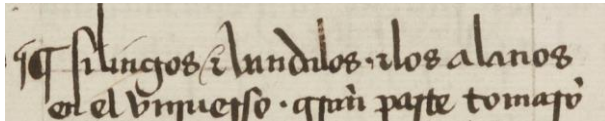 ¶ silingos & vandalos · & los alanos
en el vniuersso · grãn parte tomarõ